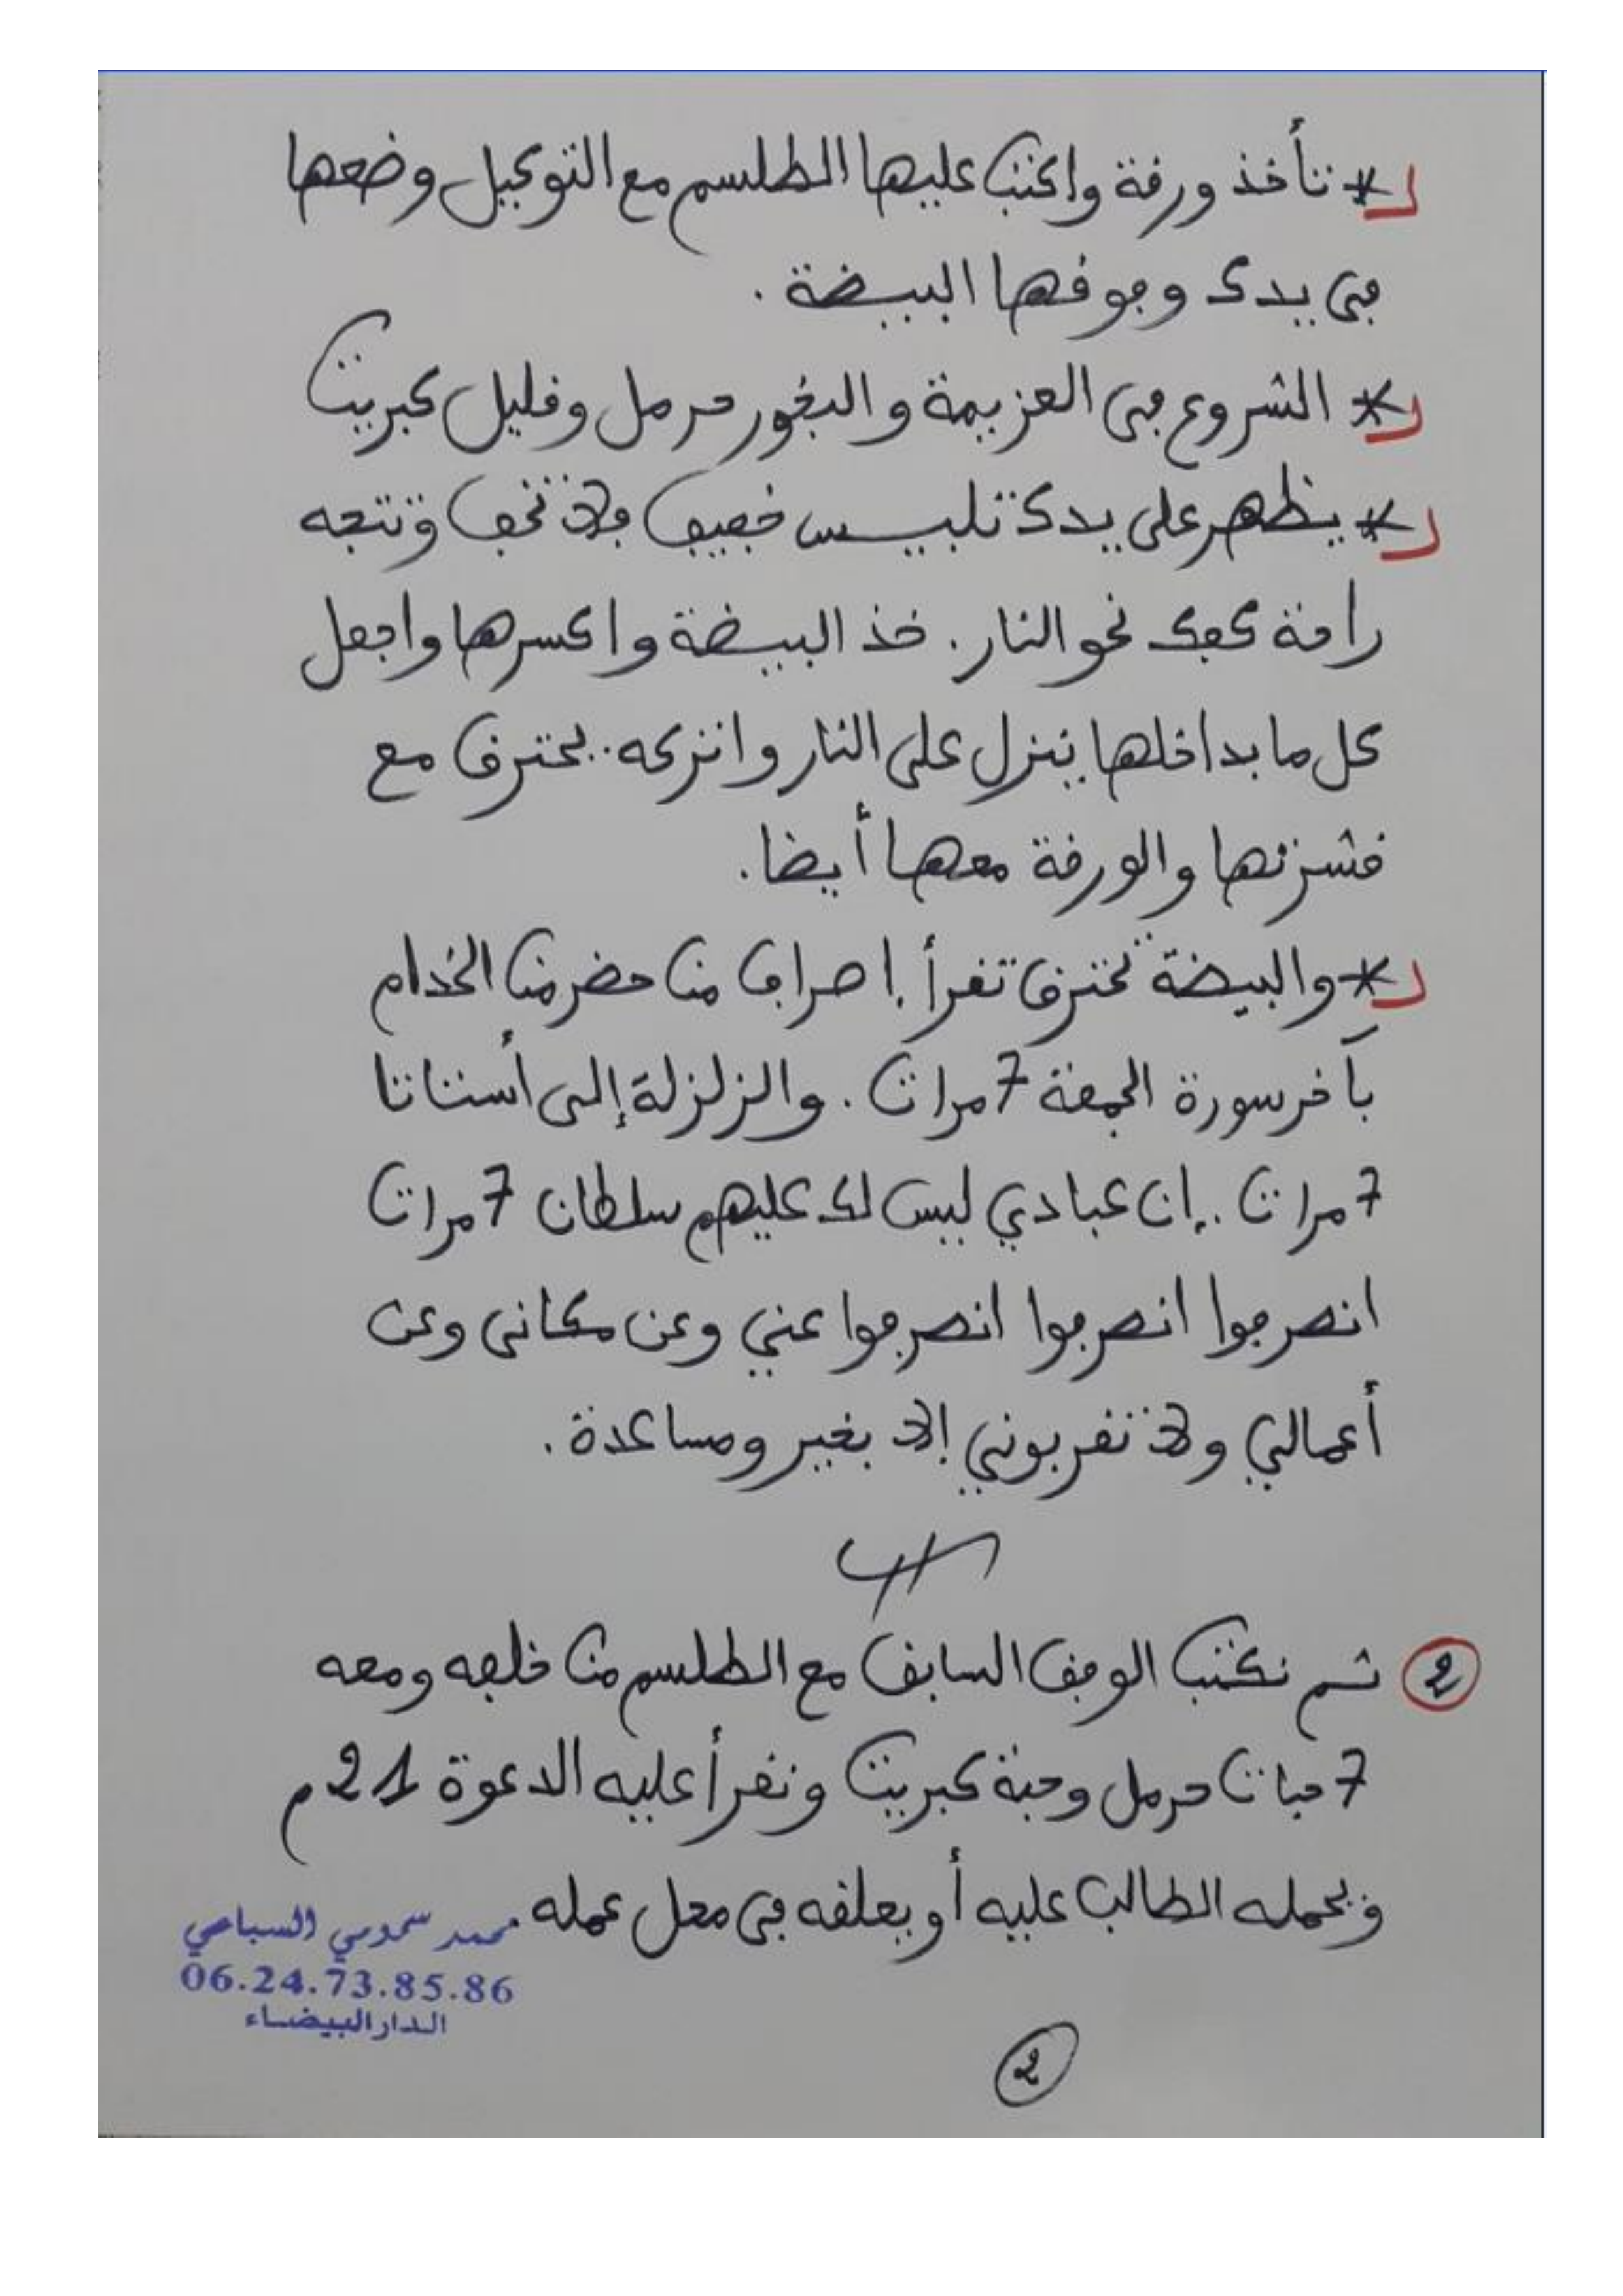 * تأخذ ورقة واكتب عليها الطلسم مع التوكيل وضعها
في يدك وفوقها البيضة .
* الشروع في العزيمة والبخور حرمل وقليل كبريت
* يظهر على يدك تلبيس خفيف فلا تخف وتتجه
راحة كفك نحو النار . خذ البيضة واكسرها واجعل
كل ما بداخلها ينزل على النار واتركه يحترق مع
قشرتها والورقة معها أيضا .
* والبيضة تحترق تقرأ إصراف من حضر من الخدام
بآخر سورة الجمعة 7 مرات . والزلزلة إلى أشتاتا
7 مرات .. إن عبادي ليس لك عليهم سلطان 7 مرات
انصرفوا انصرفوا انصرفوا عني وعن مكاني وعن
أعمالي ولا تقربوني إلا بخير ومساعدة .
2 ثم نكتب الوفق السابق مع الطلسم من خلفه ومعه
7 حبات حرمل وحبة كبريت ونقرأ عليه الدعوة 21 م
ويحمله الطالب عليه أو يعلقه في محل عمله .
محمد سمومي السباعي
06.24.73.85.86
الدار البيضاء
2